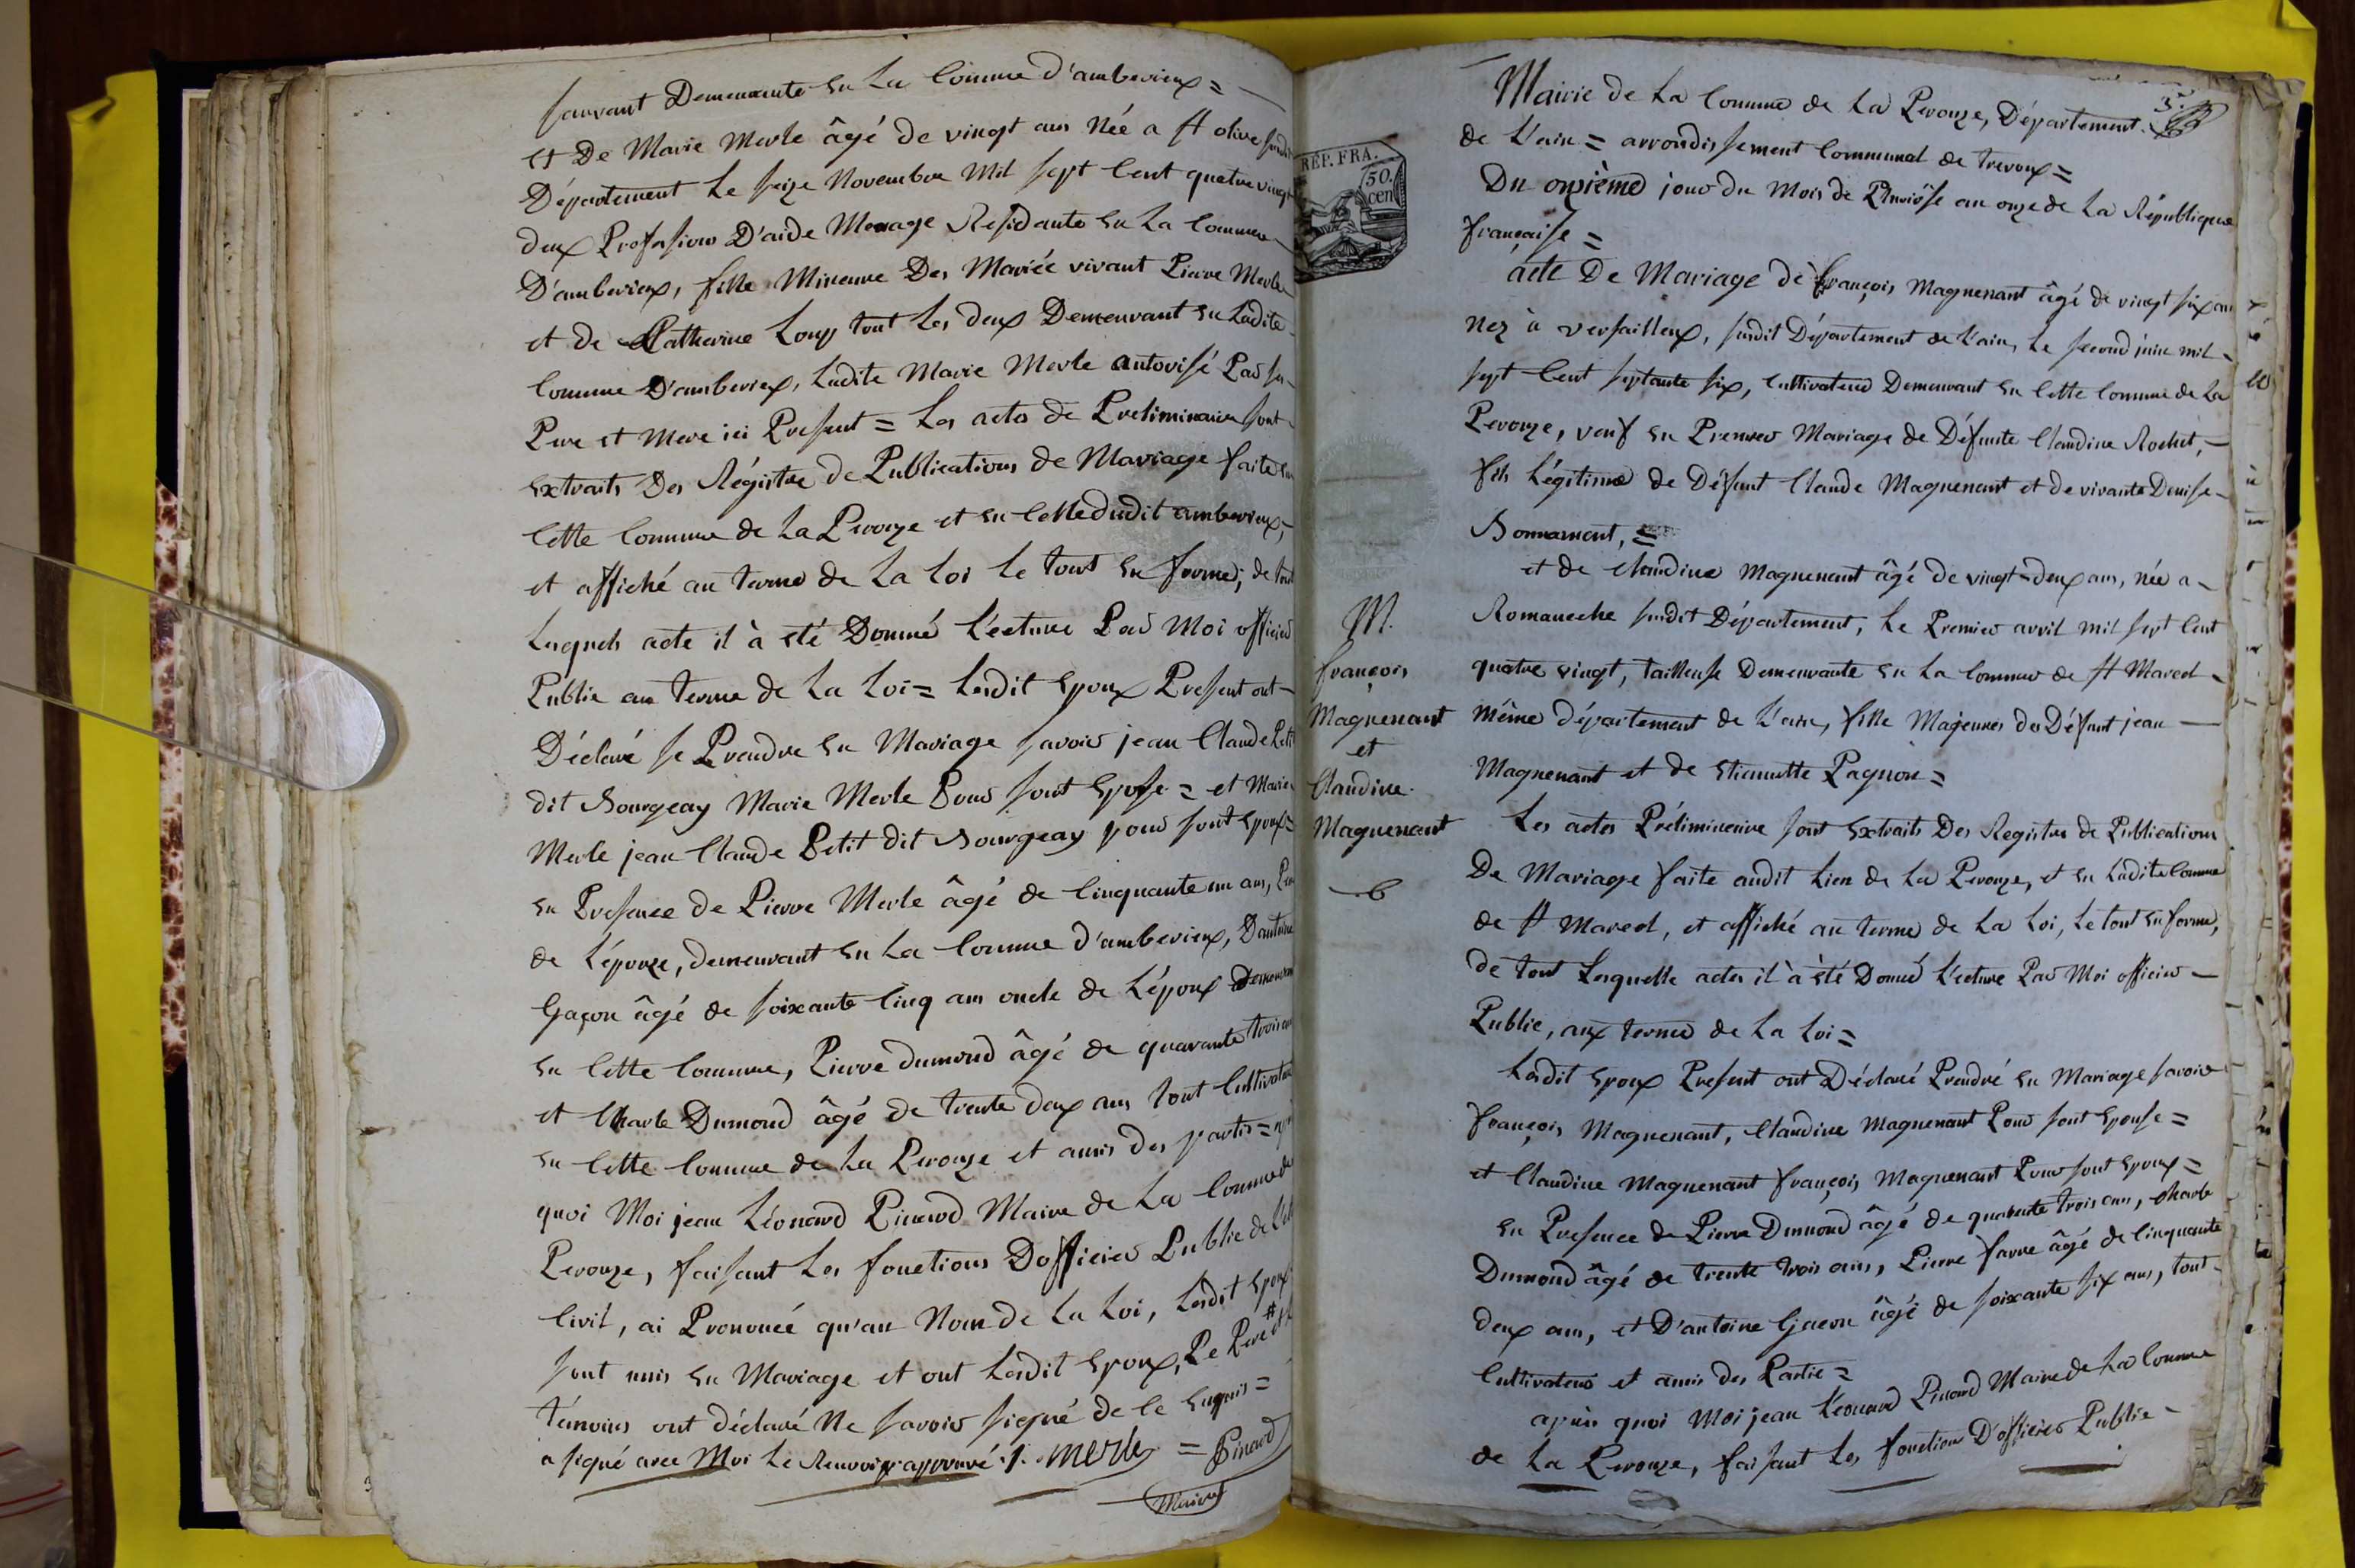 servant Demeurante En La Commune d'amberieux =
et De Marie Merle âgé de vingt ans Née a St olive susdit
Département Le seize Novembre Mil sept Cent quatre vingt
deux Profession D'aide Menage Residante En La Commune
D'amberieux, fille Mineure Des Mariée vivant Pierre Merle
et de Catherine Loup tout Les deux Demeurant En Ladite
Commune D'amberieux, Ladite Marie Merle autorisé Par ses
Pere et Mere ici Present = Les actes de Preliminaire sont
Extraits Des Régistre de Publications de Mariage faite En
Cette Commune de La Perouze et En Celle dudit amberieux,
et affiché au terme de La Loi Le tout En forme; de tout
Lesquels acte il à été Donné L'ecture Par Moi officier
Public au terme de La Loi = Lesdit Epoux Present ont
Déclaré se Prendre En Mariage savoir jean Claude Petit
dit Bourgeay Marie Merle Pour sont Epose = et Marie
Merle jean Claude Petit dit Bourgeay pour sont Epoux =
En Presence de Pierre Merle âgé de Cinquante un ans, Pere
de L'épouze, demeurant En La Commune d'amberieux, D'antoine
Gaçon âgé de soixante Cinq ans oncle de L'époux Demeurant
En Cette Commune, Pierre dumond âgé de quarante trois ans
et Charle Dumond âgé de trente deux ans tout Cultivateur
En Cette Commune de La Perouze et amis des partis =
quoi Moi jean Léonard Pinard Maire de La Commune de
Perouze, faisant Les fonctions D'officier Public de
Civil, ai Prononcé qu'au Nom de La Loi, Lesdit Epoux
sont unis En Mariage et ont Lesdit Epoux, Le Pere #
témoins ont déclaré Ne savoir signé de Ce Enquis =
a signé avec Moi Le Renvoi approuvé ./. Merle = Pinard
Maire
Mairie de La Commune de La Perouze, Département 3e
de L'ain = arrondissement Communal de trevoux =
Du onzième jour du Mois de Pluviôse an onze de La République
française =
RÉP. FRA.
50.
cen
acte De Mariage de françois Magnenant âgé de vingt six ans
Nez à versailleux, susdit Département de L'ain, Le second juin mil
sept Cent septante six, Cultivateur Demeurant En Cette Commune de La
Perouze, veuf En Premier Mariage de Défunte Claudine Rochet,
fils Légitime de Défunt Claude Magnenant et de vivante Denise
Bonnament, =
et de Claudine Magnenant âgé de vingt=deux ans, née a
Romaneche susdit Département, Le Premier avril mil sept Cent
quatre vingt, tailleuse Demeurante En La Commune de St Marcel
même département de L'ain, fille Majeures de Défunt jean
Magnenant et de Etiennette Pagnon =
M.
françois
Magnenant
et
Claudine
Magnenant
Les actes Préliminaire sont Extraits Des Registres de Publications
De Mariage faite audit Lieu de La Perouze, et En Ladite Commune
de St Marcel, et affiché au terme de La Loi, Le tout En forme,
de tout Lesquelle actes il à été Donné L'ecture Par Moi officier
Public, aux terme de La Loi =
Lesdit Epoux Present ont Déclaré Prendre En Mariage savoir
françois Magnenant, Claudine Magnenant Pour sont Epouse =
et Claudine Magnenant françois Magnenant Pour sont Epoux =
En Presence de Pierre Dumond âgé de quarente trois ans, Charle
Dumond âgé de trente trois ans, Pierre favre âgé de Cinquante
deux ans, et D'antoine Gacon âgé de soixante six ans, tout
Cultivateur et amis des Partie =
après quoi Moi jean Léonard Pinard Maire de La Commune
de La Perouze, faisant Les fonction D'officier Public